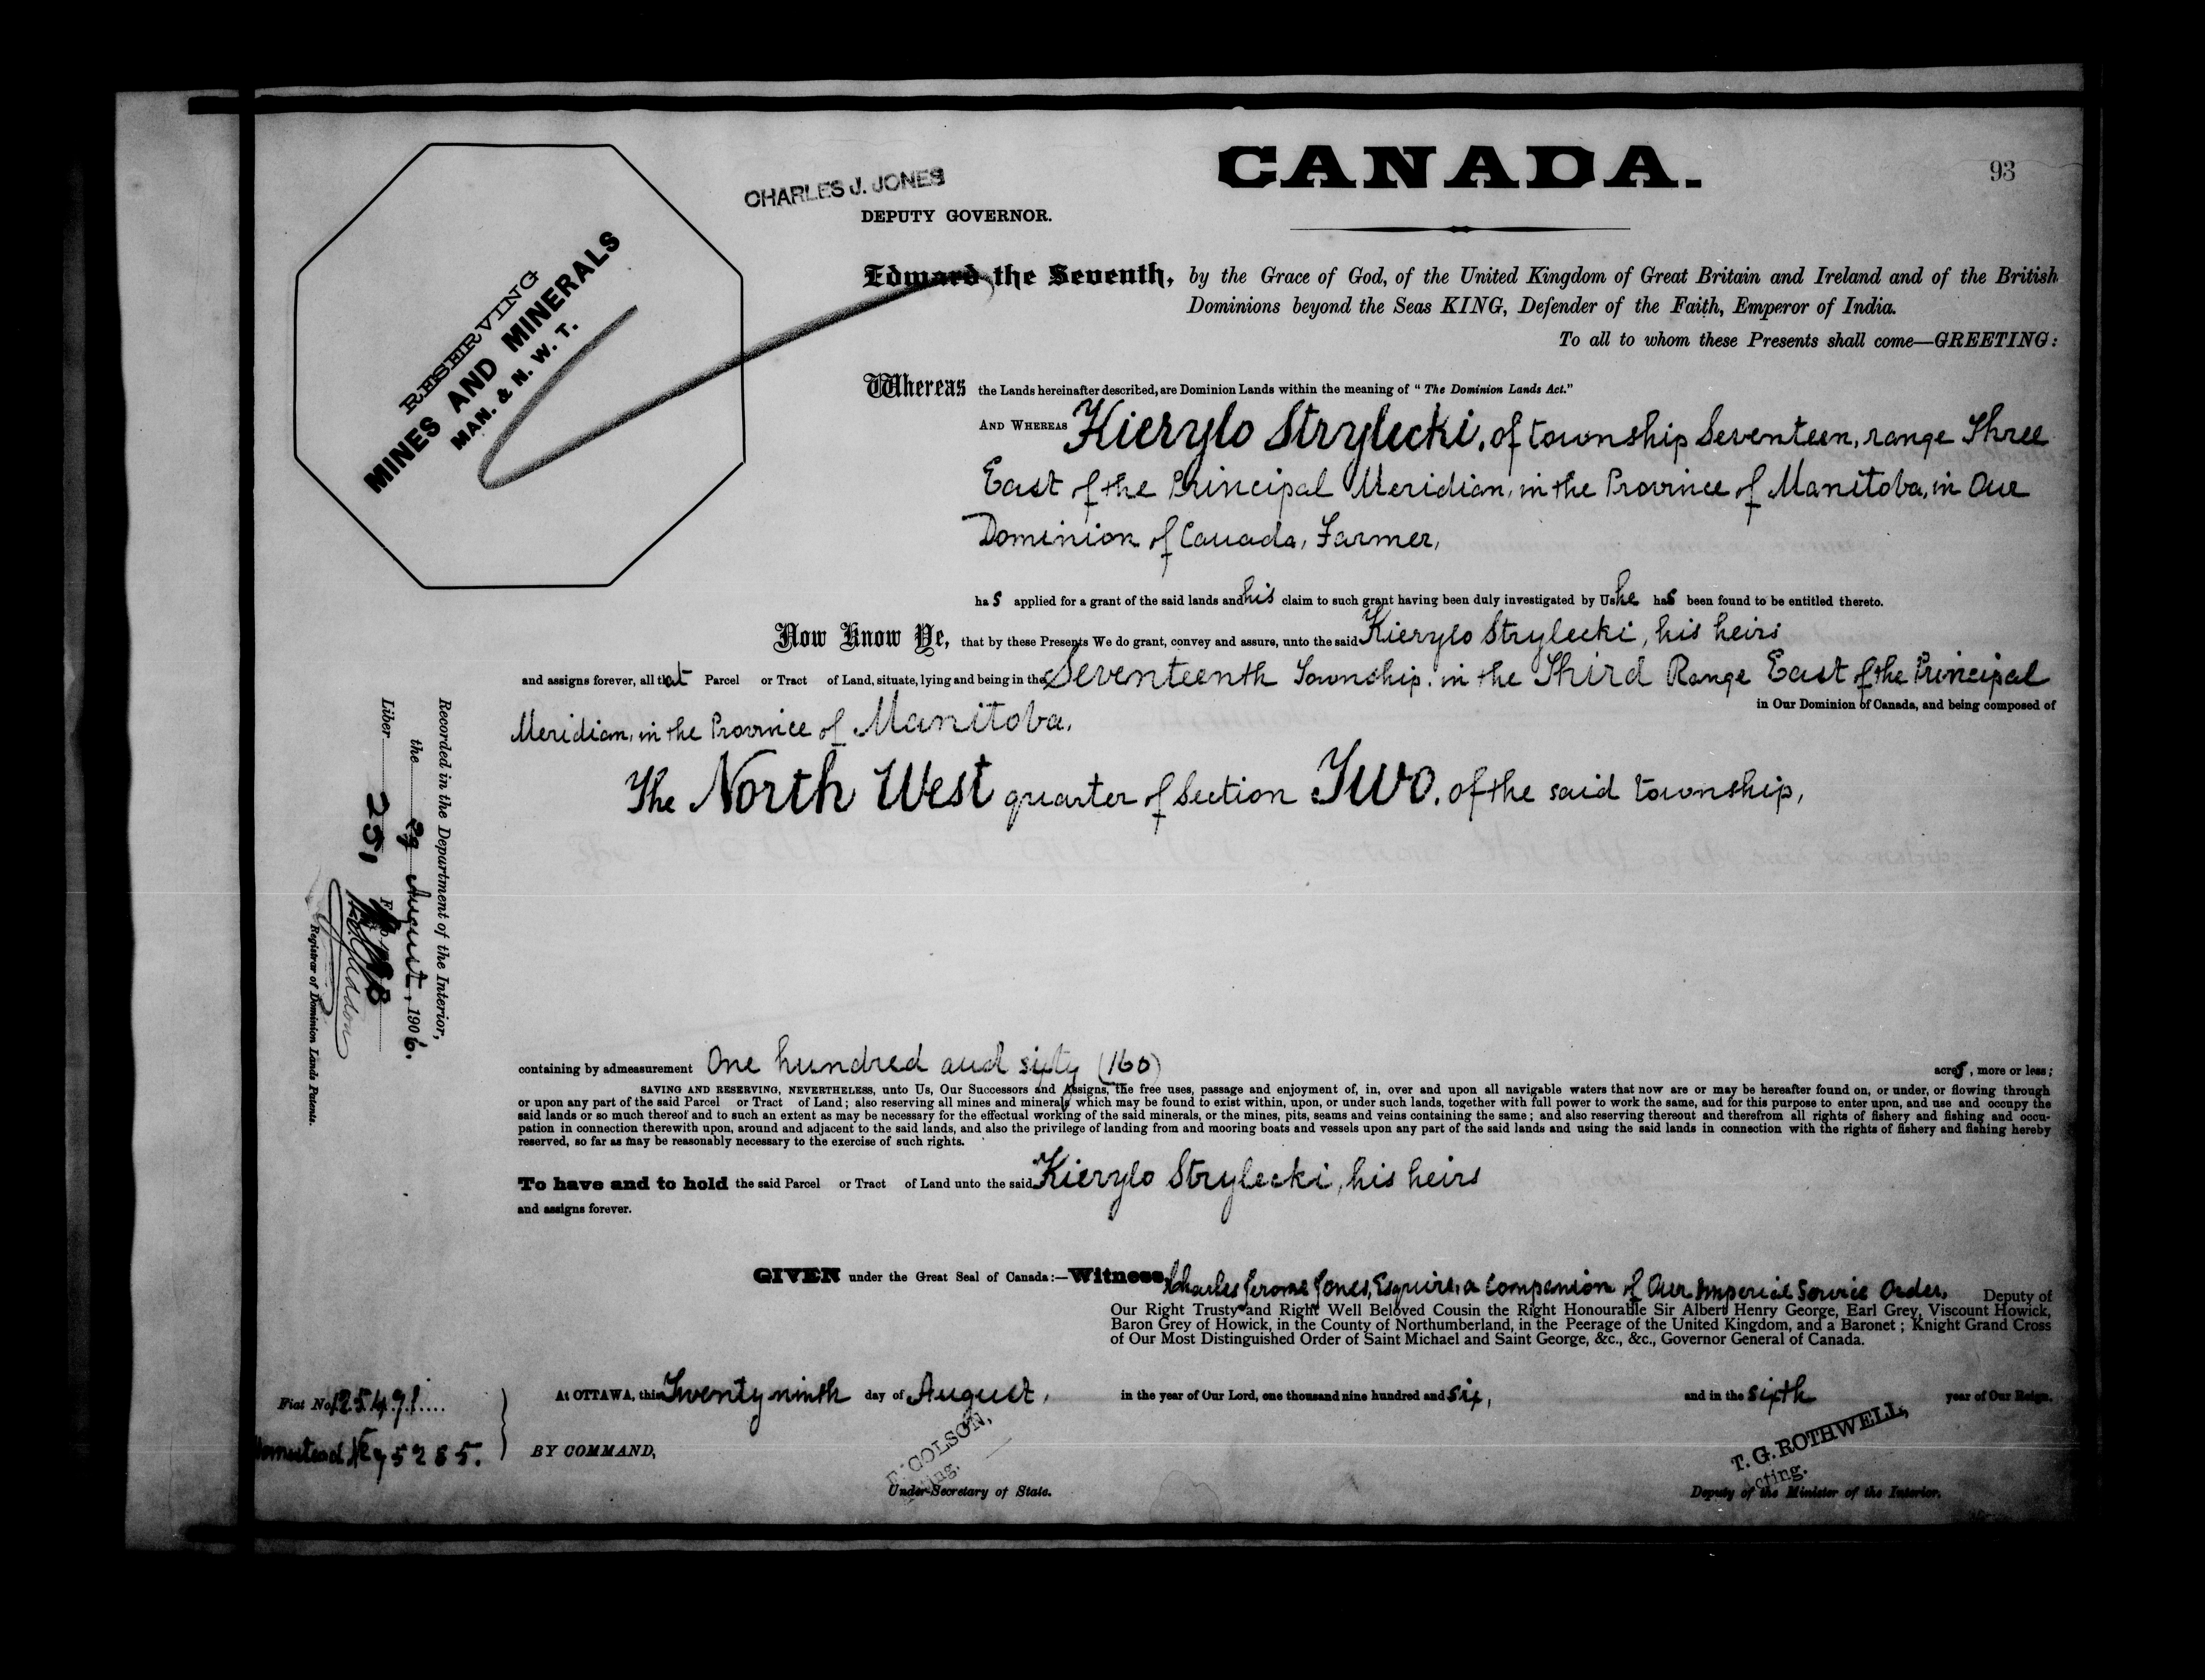 CANADA.
93
CHARLES J. JONES
DEPUTY GOVERNOR.
RESERVING
MINES AND MINERALS
MAN. & N. W. T.
Edward the Seventh, by the Grace of God, of the United Kingdom of Great Britain and Ireland and of the British
Dominions beyond the Seas KING, Defender of the Faith, Emperor of India.
To all to whom these Presents shall come—GREETING:
Whereas the Lands hereinafter described, are Dominion Lands within the meaning of "The Dominion Lands Act."
AND WHEREAS Kierylo Strylecki, of township Seventeen, range Three
East of the Principal Meridian, in the Province of Manitoba, in Our
Dominion of Canada, Farmer,
has applied for a grant of the said lands and his claim to such grant having been duly investigated by Us he has been found to be entitled thereto.
Now Know Ye, that by these Presents We do grant, convey and assure, unto the said Kierylo Strylecki, his heirs
and assigns forever, all that Parcel or Tract of Land, situate, lying and being in the Seventeenth Township, in the Third Range East of the Principal
Meridian, in the Province of Manitoba, in Our Dominion of Canada, and being composed of
The North West quarter of Section Two, of the said township,
containing by admeasurement One hundred and sixty (160) acres, more or less;
SAVING AND RESERVING, NEVERTHELESS, unto Us, Our Successors and Assigns, the free uses, passage and enjoyment of, in, over and upon all navigable waters that now are or may be hereafter found on, or under, or flowing through
or upon any part of the said Parcel or Tract of Land; also reserving all mines and minerals which may be found to exist within, upon, or under such lands, together with full power to work the same, and for this purpose to enter upon, and use and occupy the
said lands or so much thereof and to such an extent as may be necessary for the effectual working of the said minerals, or the mines, pits, seams and veins containing the same; and also reserving thereout and therefrom all rights of fishery and fishing and occu-
pation in connection therewith upon, around and adjacent to the said lands, and also the privilege of landing from and mooring boats and vessels upon any part of the said lands and using the said lands in connection with the rights of fishery and fishing hereby
reserved, so far as may be reasonably necessary to the exercise of such rights.
To have and to hold the said Parcel or Tract of Land unto the said Kierylo Strylecki, his heirs
and assigns forever.
GIVEN under the Great Seal of Canada:—Witness, Charles Jerome Jones, Esquire, a Companion of Our Imperial Service Order, Deputy of
Our Right Trusty and Right Well Beloved Cousin the Right Honourable Sir Albert Henry George, Earl Grey, Viscount Howick,
Baron Grey of Howick, in the County of Northumberland, in the Peerage of the United Kingdom, and a Baronet; Knight Grand Cross
of Our Most Distinguished Order of Saint Michael and Saint George, &c., &c., Governor General of Canada.
At OTTAWA, this Twenty ninth day of August, in the year of Our Lord, one thousand nine hundred and six, and in the sixth year of Our Reign.
BY COMMAND,
COLSON,
Acting.
Under-Secretary of State.
T. G. ROTHWELL,
Acting.
Deputy of the Minister of the Interior.
Fiat No. 125491
Homestead
Recorded in the Department of the Interior,
the 29 August, 1906.
Liber 251
Registrar of Dominion Lands Patents.